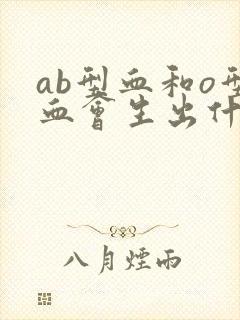 ab型血和o型
血會生出什
八月煙雨